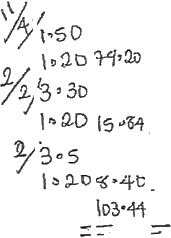 11/4/ 1.50
1.20 79.20
2/2/ 3.30
1.20 15.84
2/ 3.5
1.20 8.40
103.44